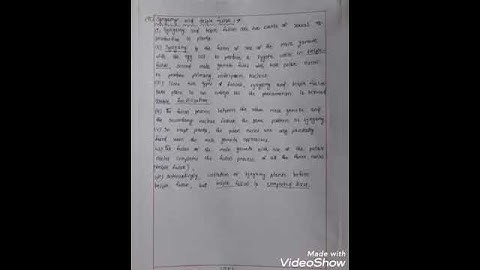 Syngamy and triple fusion :→
(i) Syngamy and triple fusion are two events of sexual reproduction in plants.
(ii) Syngamy is the fusion of one of the male gametes
with the egg cell to produce a zygote while in triple
fusion, second male gamete fuses with two polar nuclei
to produce primary endosperm nucleus.
two types of fusion, syngamy and triple fusion
take place in an embryo sac the phenomenon is termed
double fertilization.
(iv) The fusion process between the other male gamete and
the secondary nucleus follows the same pattern as syngamy.
(v) In most plants, the polar nuclei are only partially
fused when the male gamete approaches.
The fusion of the male gamete with one of the polar
nuclei completes the fusion process of all the three nuclei
(triple fusion).
Interestingly, initiation of syngamy starts before
triple fusion, but triple fusion is completed first.
Made with
VideoShow